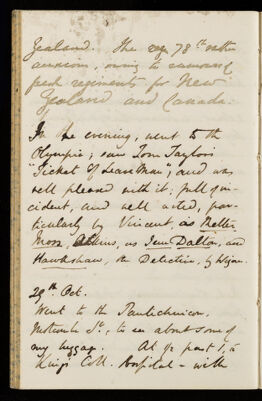 Zealand. The 78th
owing to removal of
fresh regiments for New
Zealand and Canada.
In the evening, went to the
Olympic; saw Tom Taylor's
"Ticket of Leave Man", and was
well pleased with it; full of in-
cident, and well acted, par-
ticularly by Vincent, as Melter
Moss, as Jem Dalton, and
Hawkshaw, the Detective, by
29th Oct.
Went to the
St. to see about some of
my luggage. At ½ past 1, to
King's Coll. Hospital – with